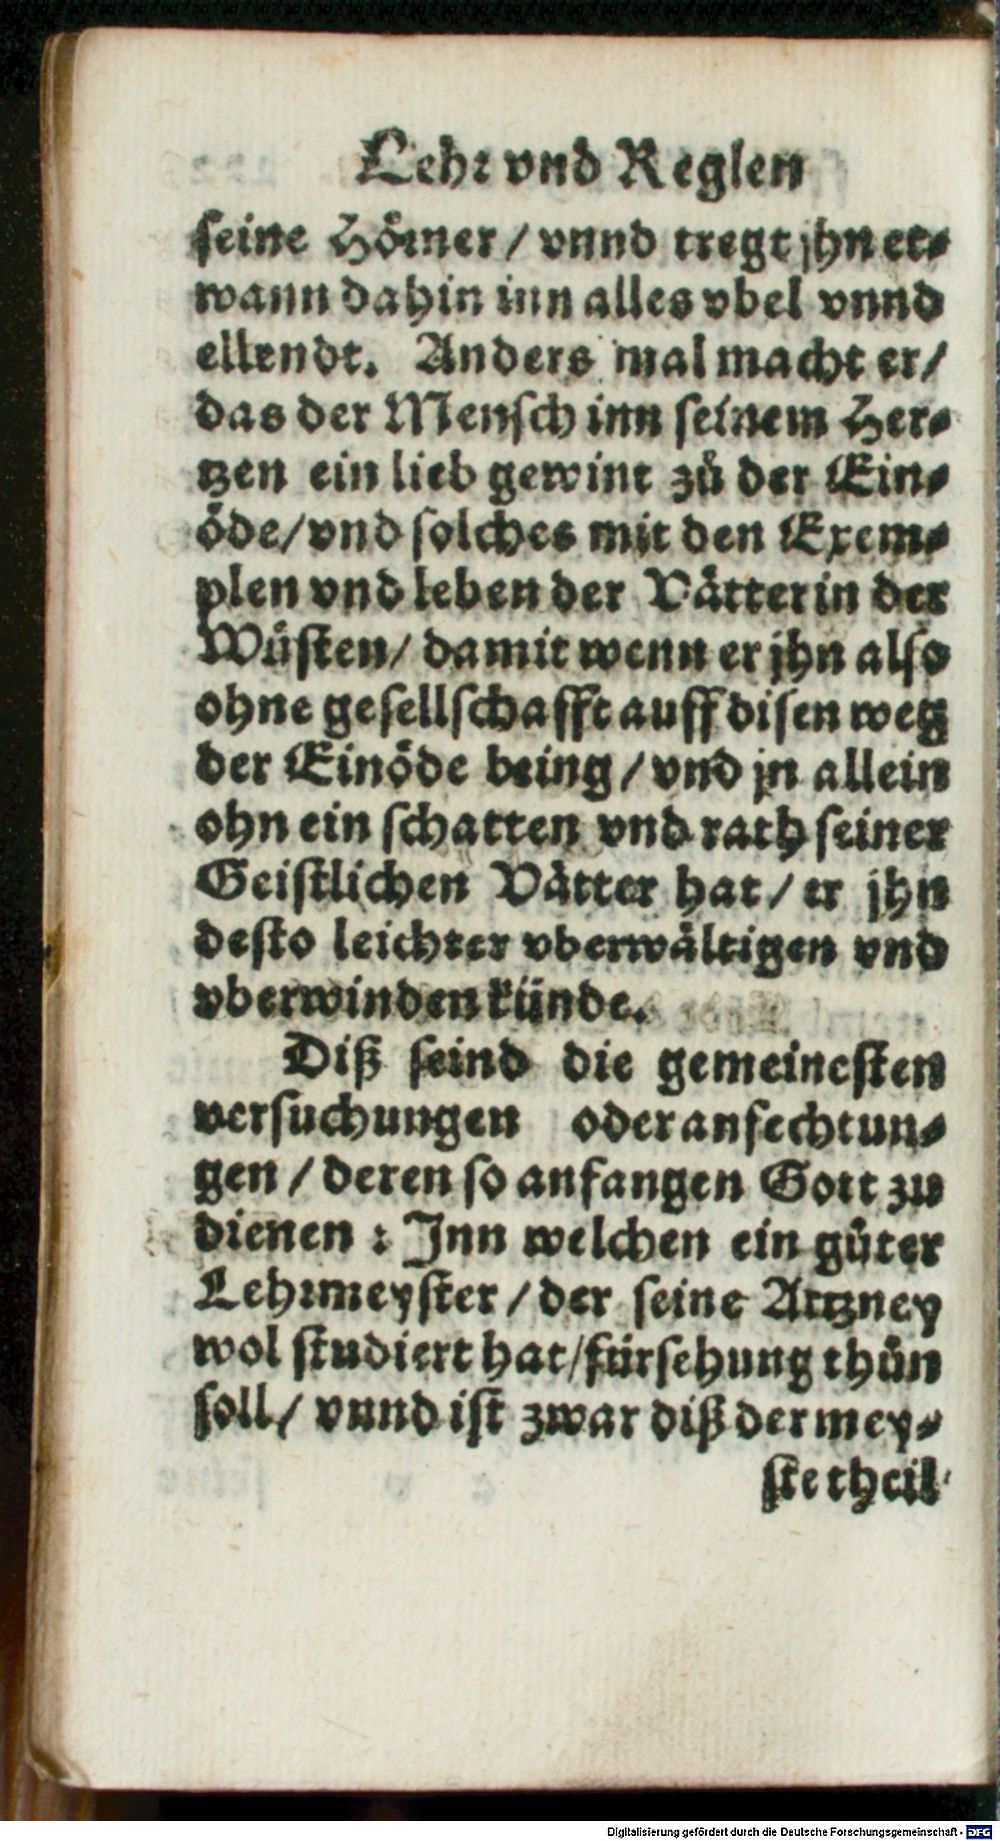 Lehr vnd Reglen
seine Hörner / vnnd tregt jhn et⸗
wann dahin inn alles vbel vnnd
ellendt. Anders mal macht er /
das der Mensch inn seinem Her⸗
tzen ein lieb gewint zů der Ein⸗
öde / vnd solches mit den Exem⸗
plen vnd leben der Vätter in der
Wüsten / damit wenn er jhn also
ohne gesellschafft auff disen weg
der Einöde bring / vnd jn allein
ohn ein schatten vnd rath seiner
Geistlichen Vätter hat / er jhn
desto leichter vberwältigen vnd
vberwinden künde.
Diß seind die gemeinesten
versuchungen oder anfechtun⸗
gen / deren so anfangen Gott zu
dienen : Inn welchen ein gůter
Lehrmeyster / der seine Artzney
wol studiert hat / fürsehung thůn
soll / vnnd ist zwar diß der mey⸗
ste theil
Digitalisierung gefördert durch die Deutsche Forschungsgemeinschaft - DFG